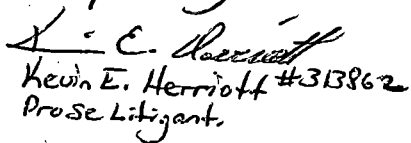 K E. Herriott
Kevin E. Herriott #313862
Prose Litigant.